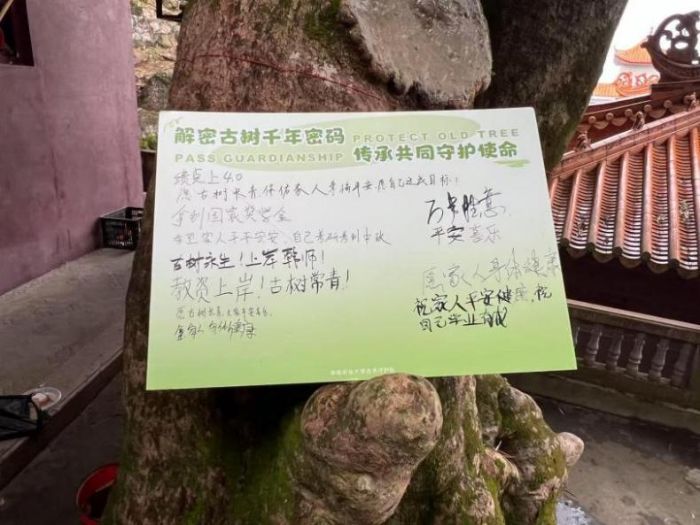 解密古树千年密码 PROTECT OLD TREE
PASS GUARDIANSHIP 传承共同守护使命
绩点上4.0
愿古树长青,保佑家人幸福平安,愿自己达成目标!
拿到国家奖学金
万事胜意
平安喜乐
家人平平安安,自己考研考到
古树永生!上岸韩师!
教资上岸!古树常青!
愿家人身体健康
祝家人平安健康,祝
自己学业有成
愿古树长青,大家平安喜乐
家人身体健康